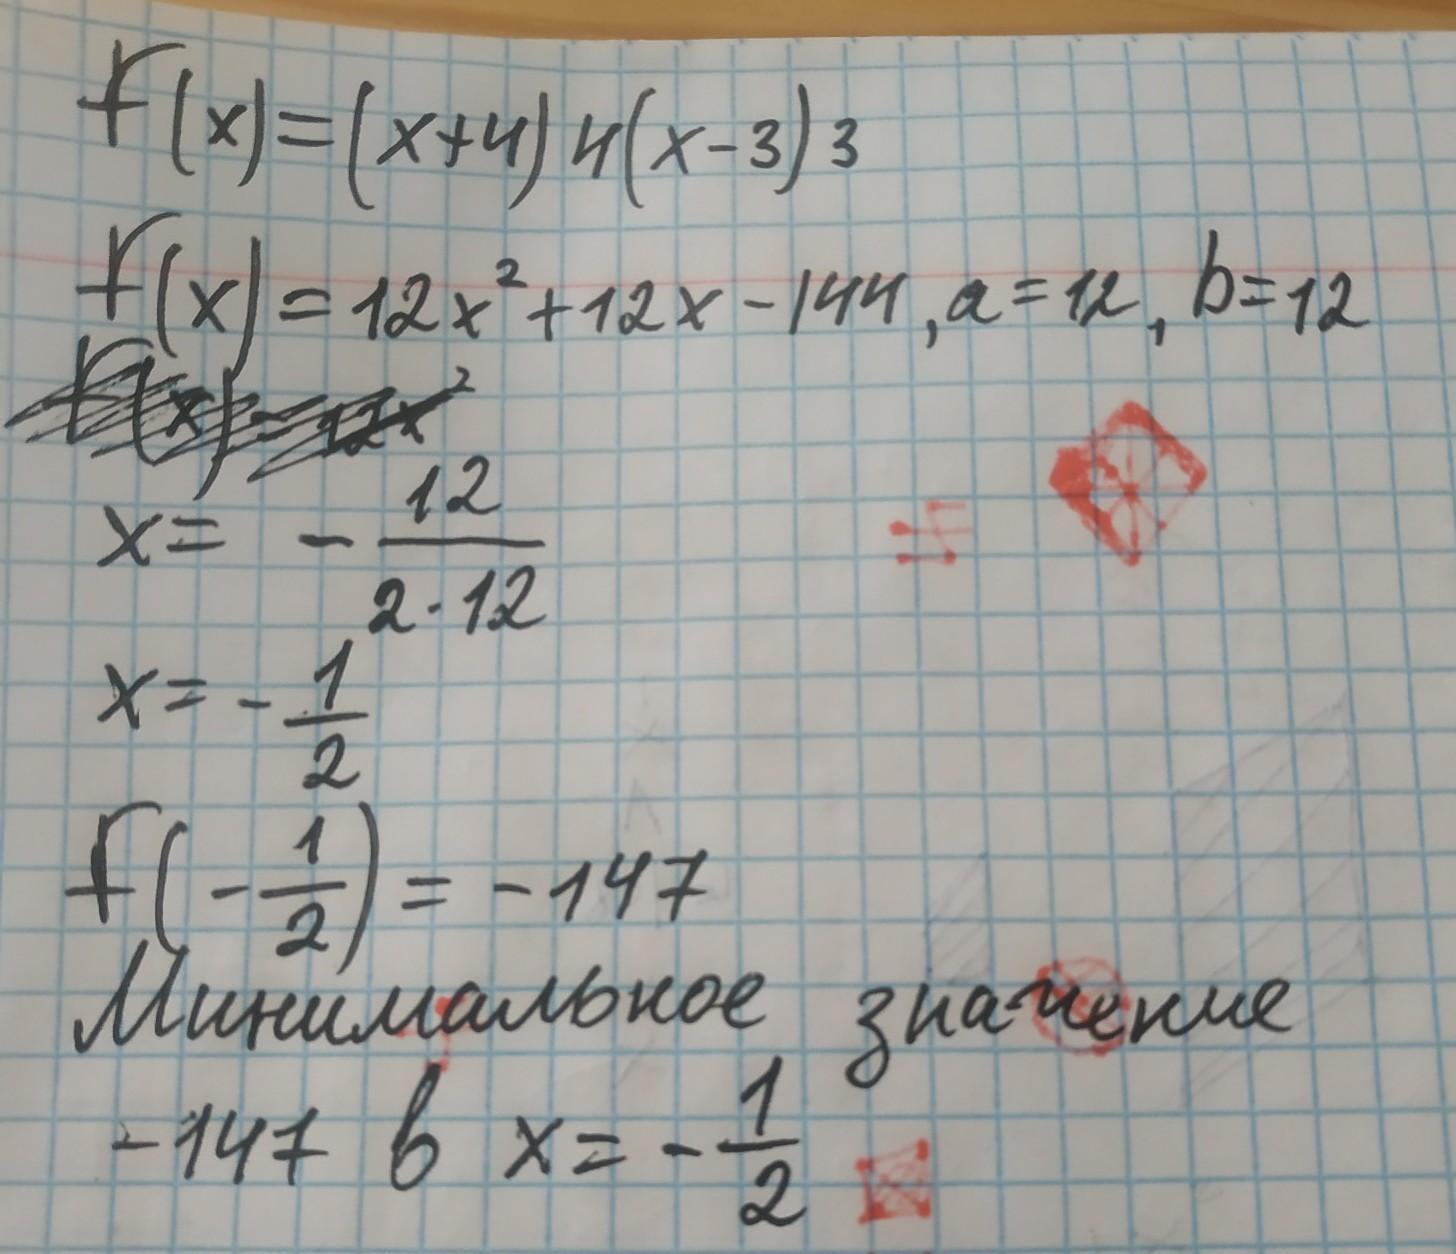 f(x)=(x+4)4(x-3)3
f(x)=12x²+12x-144, a=12, b=12
f(x)=12x²
x= - 12/(2·12)
x= - 1/2
f(-1/2) = -147
Минимальное значение
-147 в x= - 1/2